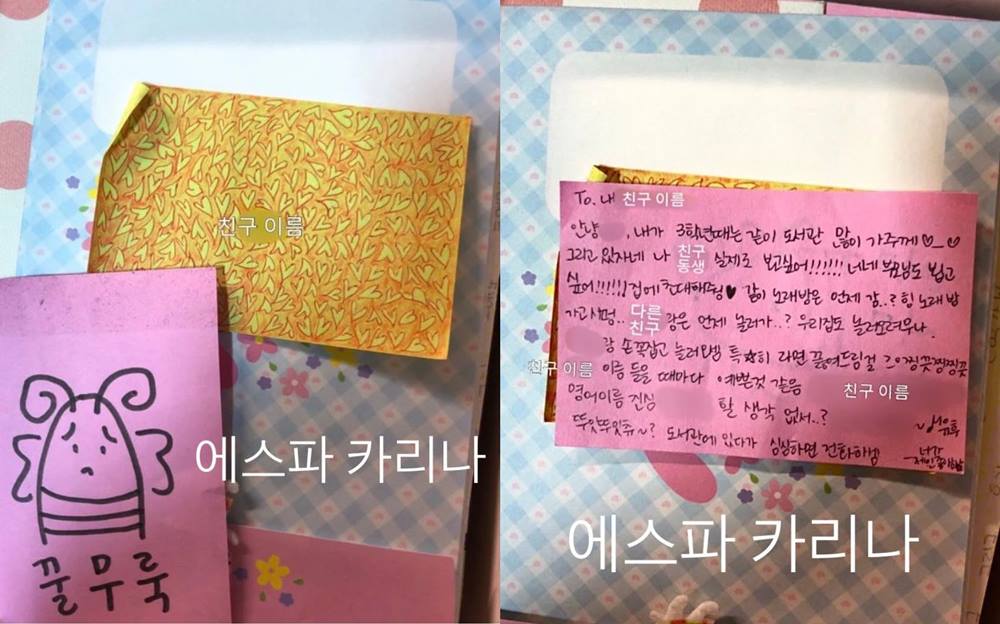 친구 이름
에스파 카리나
꿀무룩
To. 내 친구 이름
안냥 , 내가 3학년때는 같이 도서관 많이 가주께♡_♡
그리고 있자네 나 친구 동생 실제로 보고싶어!!!!!! 너네 부모님도 뵙고
싶어!!!!! 같이 노래방은 언제 감..? 힝 노래방
가고시펑.. 다른 친구 랑은 언제 놀러가..? 우리집도 놀러오려우나.
랑 손꼭잡고 놀러오벰 특☆히 라면 끓여드림걸
친구 이름 이름 들을 때마다 예쁜것 같음 친구 이름
영어이름 진심 할 생각 없서..?
뚜앗뚜앗츄~? 도서관에 있다가 심심하면 전화하벰
너가
에스파 카리나